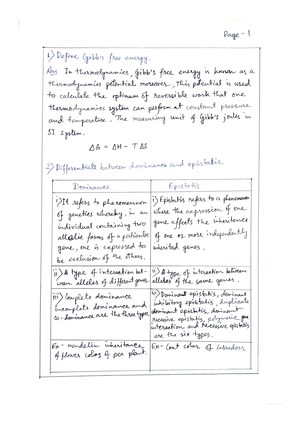 Page - 1
1) Define Gibb's free energy.
Ans In thermodynamics, Gibb's free energy is known as a
thermodynamics potential moreover, this potential is used
to calculate the optimum of reversible work that one
thermodynamics system can perform at constant pressure
and temperature. The measuring unit of Gibb's joules in
SI system.
ΔG = ΔH - TΔS
2) Differentiate between dominance and epistatis.
Dominance
i) It refers to phenomenon
of genetics whereby, in an
individual containing two
allelic forms of a particular
gene, one is expressed to
be exclusion of the others.
ii) A type of interaction bet-
ween alleles of different genes.
iii) Complete dominance
incomplete dominance and
co-dominance are the three types
Ex - mendelin inheritance
of flower color of pea plant.
Epistatis
i) Epistatis refers to a phenomenon
where the expression of one
gene affects the inheritence
of one or more independently
inherited genes.
ii) A type of interaction between
alleles of the same genes.
iii) Dominant epistatis, dominant
inhibitory epistatis, duplicate
dominant epistatis, dominant
recessive epistatis, polymeric gene
interaction and recessive epistatis
are the six types.
Ex - Coat color of labradors